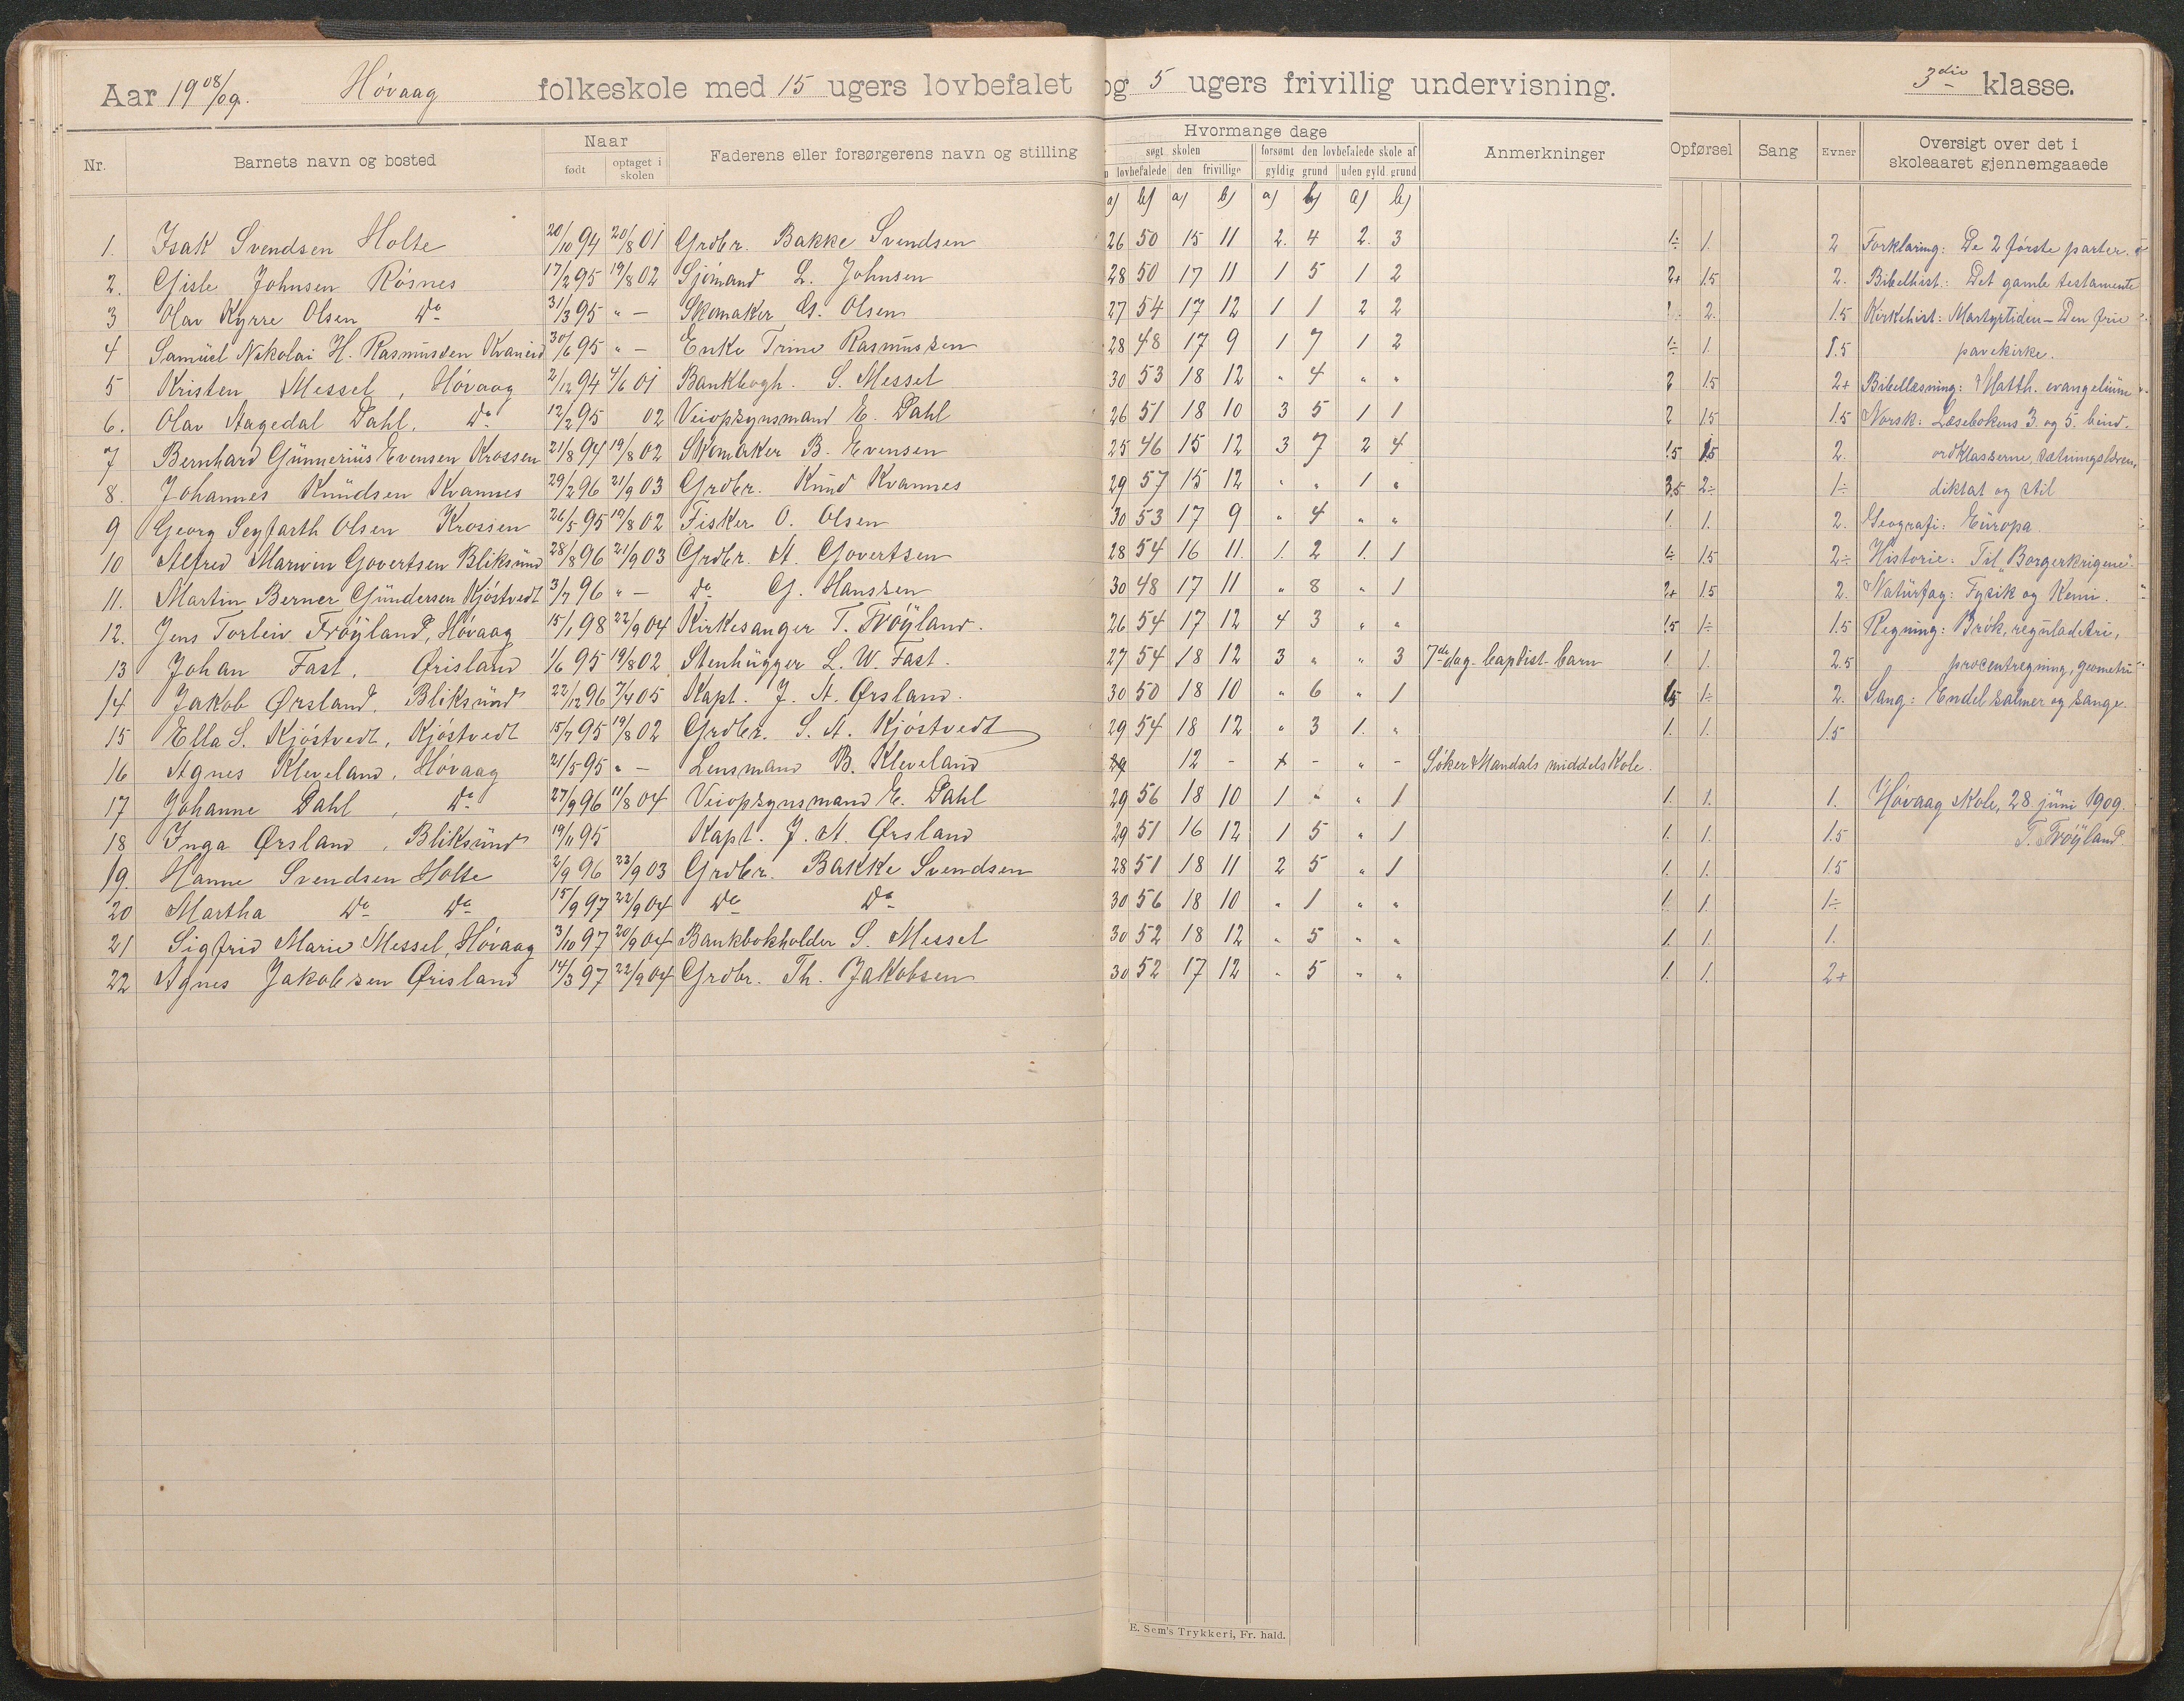 Aar 1908/09. Høvaag folkeskole med 15 ugers lovbefalet og 5 ugers frivillig undervisning. 3die klasse.
Nr. Barnets navn og bosted Naar født optaget i skolen Faderens eller forsørgerens navn og stilling Hvormange dage søgt skolen lovbefalede den frivillige forsømt den lovbefalede skole af gyldig grund uden gyld. grund Anmerkninger Opførsel Sang Evner Oversigt over det i skoleaaret gjennemgaaede
a) b) a) b) a) b) a) b)
1. Isak Svendsen Holte 20/10 94 20/8 01 Grdbr. Bakke Svendsen 26 50 15 11 2. 4 2. 3 1÷ 1. 2 Forklaring: De 2 første parter.
2. Gisle Johnsen Røsnes 17/2 95 19/8 02 Sjømand L. Johnsen 28 50 17 11 1 5 1 2 2+ 1.5 2. Bibelhist.: Det gamle testamente
3 Olav Kyrre Olsen do 31/3 95 " — Skomaker G. Olsen 27 54 17 12 1 1 2 2 2. 1.5 Kirkehist: Martyrtiden — Den frie
4 Samuel Nikolai H. Rasmussen 30/6 95 " — Enke Trine Rasmussen 28 48 17 9 1 7 1 2 1÷ 1. 1.5 pavekirke.
5 Kristen Messel, Høvaag 2/12 94 4/6 01 Bankbogh. S. Messel 30 53 18 12 " 4 " " 2 1.5 2+ Bibellæsning: Matth. evangelium
6. Olav Aagedal Dahl, do 12/2 95 02 Veiopsynsmand E. Dahl 26 51 18 10 3 5 1 1 2 1.5 1.5 Norsk: Læsebokens 3. og 5. bind.
7 Bernhard Gunnerius Evensen Krossen 21/8 94 19/8 02 Skomaker B. Evensen 25 46 15 12 3 7 2 4 1.5 1.5 2. ordklasserne, sætningslæren,
8. Johannes Knudsen Kvannes 29/2 96 21/9 03 Grdbr. Knud Kvannes 29 57 15 12 " " 1 " 3.5 2÷ 1÷ diktat og stil
9 Georg Seyfarth Olsen Krossen 26/5 95 19/8 02 Fisker O. Olsen 30 53 17 9 " 4 " " 1. 1. 2. Geografi: Europa.
10 Alfred Marwin Govertsen Bliksund 28/8 96 21/9 03 Grdbr. A. Govertsen 28 54 16 11. 1. 2 1. 1 1÷ 1.5 2÷ Historie: Til "Borgerkrigene".
11. Martin Berner Gundersen Kjøstvedt 3/7 96 " — do G. Hanssen 30 48 17 11 " 8 " 1 2+ 1.5 2. Naturfag: Fysik og Kemi.
12. Jens Torleiv Frøyland, Høvaag 15/1 98 22/9 04 Kirkesanger T. Frøyland. 26 54 17 12 4 3 " " 1.5 1÷ 1.5 Regning: Brøk, reguladetri,
13 Johan Fast, Ørisland 1/6 95 19/8 02 Stenhugger L. W. Fast. 27 54 18 12 3 " " 3 7de dag-baptist-barn 1. 1. 2.5 procentregning, geometri
14 Jakob Ørsland, Bliksund 22/12 96 7/4 05 Kapt. J. A. Ørsland. 30 50 18 10 " 6 " 1 1.5 1÷ 2. Sang: Endel salmer og sange.
15 Ella S. Kjøstvedt, Kjøstvedt 15/7 95 19/8 02 Grdbr. S. A. Kjøstvedt 29 54 18 12 " 3 1. " 1. 1. 1.5
16 Agnes Kleveland, Høvaag 21/5 95 " — Lensmand B. Kleveland 12 - - " - Søker Mandals middelskole.
17 Johanne Dahl, do 27/9 96 11/8 04 Veiopsynsmand E. Dahl 29 56 18 10 1 " " 1 1. 1. 1. Høvaag skole, 28. juni 1909.
18 Inga Ørsland, Bliksund 19/11 95 Kapt. J. A. Ørsland 29 51 16 12 1 5 " 1 1. 1. 1.5 T. Frøyland.
19. Hanne Svendsen Holte 2/9 96 23/9 03 Grdbr. Bakke Svendsen 28 51 18 11 2 5 " 1 1. 1. 1.5
20 Martha do do 15/9 97 22/9 04 do do 30 56 18 10 " 1 " " 1. 1. 1÷
21 Sigfrid Marie Messel, Høvaag 3/10 97 20/9 04 Bankbokholder S. Messel 30 52 18 12 " 5 " " 1. 1. 1.
22 Agnes Jakobsen Ørisland 14/3 97 22/9 04 Grdbr. Th. Jakobsen 30 52 17 12 " 5 " " 1. 1. 2+
E. Sem's Trykkeri, Fr. hald.